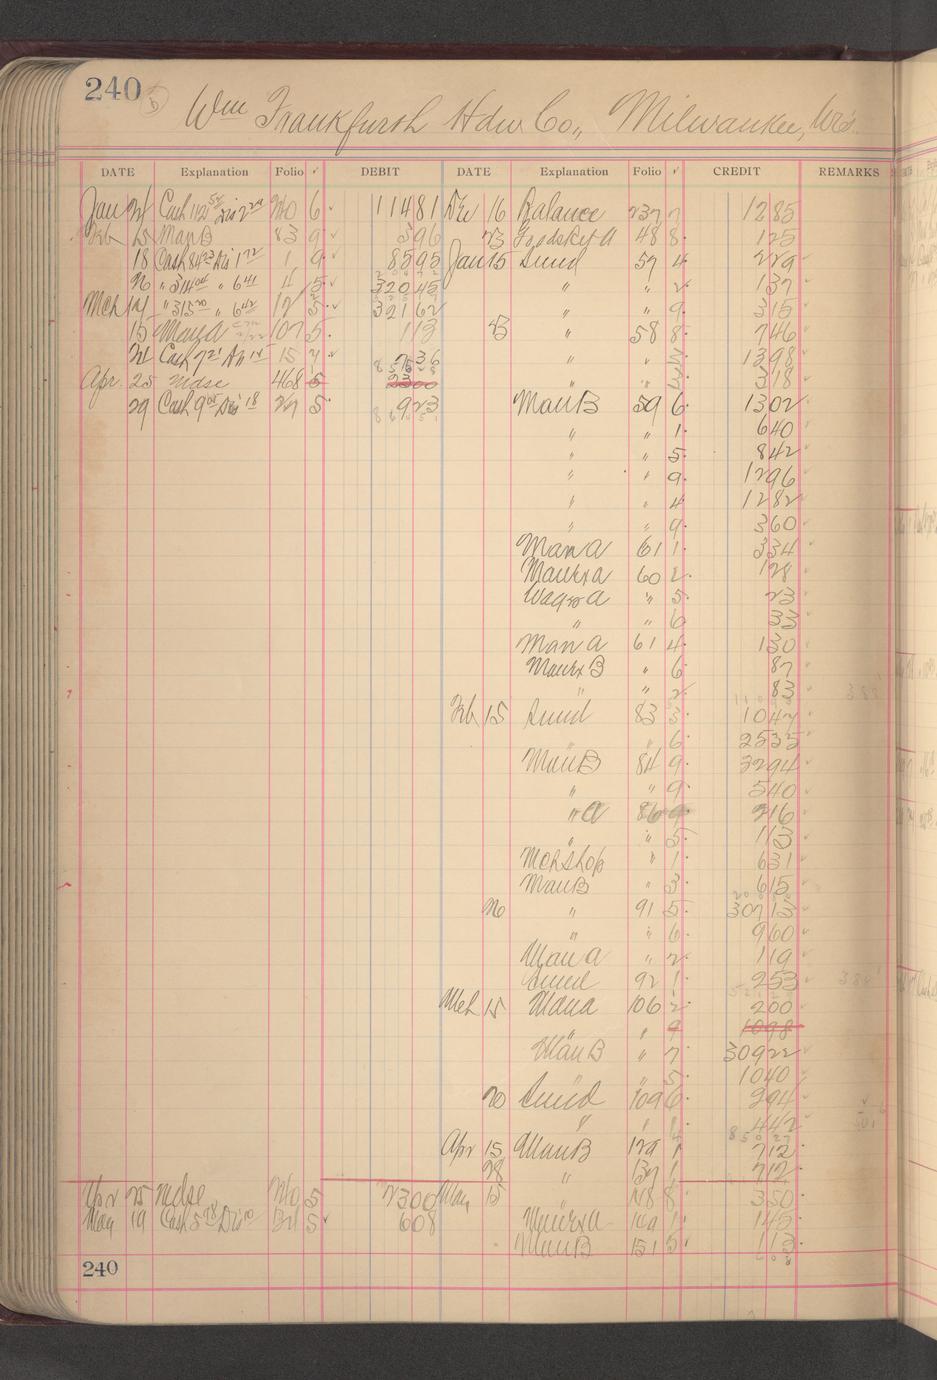 240
Wm Frankfurth Hdw Co., Milwaukee, Wis.
DATE Explanation Folio ✓ DEBIT DATE Explanation Folio ✓ CREDIT REMARKS
Jan 24 Cash 112 52 Dis 2 29 240 6 11481 Dec 16 Balance 237 7 1285
Feb 15 Man B 83 9 396 23 48 8 125
18 Cash 84 23 Dis 1 72 1 9 8595 Jan 15 Sund 57 4 229
26 " 314 04 " 6 41 4 5 32045 " " 2 137
Mch 14 " 315 20 " 6 42 12 5 32162 " " 9 315
15 Man a 107 5 113 23 " 58 8 746
24 Cash 7 21 Dis 15 15 7 736 " " 1398
Apr. 25 Mdse 468 5 2300 " " 318
29 Cash 9 05 Dis 18 27 5 923 Man B 59 6 1302
" " 1 640
" " 5 842
" " 9 1296
" " 4 1282
" " 9 360
Man a 61 1 334
Manex a 60 2 128
Wagon a " 5 23
" " 6 33
Man a 61 4 130
Manex B " 6 87
" " 2 83
Feb 15 Sund 83 3 1047
" " 6 2535
Man B 84 9 3294
" " 9 540
" a 86 9 216
" " 5 113
Mch shop " 1 631
Man B " 3 615
26 " 91 5 30713
" " 6 960
Man a " 2 119
Sund 92 1 253
Mch 15 Man a 106 2 200
" " 9 1098
Man B " 7 30922
" " 5 1040
20 Sund 109 6 294
" " 1 442
Apr 15 Man B 129 1 712
28 " 137 1 712
Apr 25 Mdse 240 5 2300 May 15 " 148 8 350
May 19 Cash 5 98 Dis 10 5 608 Manex a 149 1 145
Man B 151 5 113
240